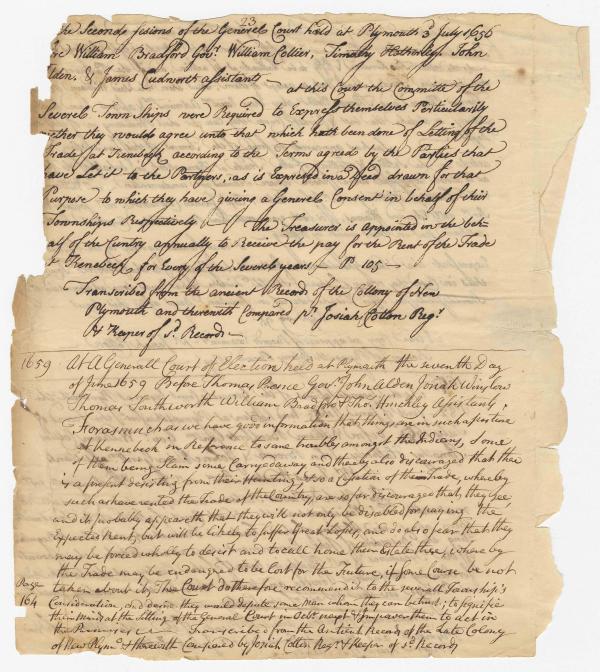 23
he Seconde sesions of the Generel Court held at Plymouth 3 July 1656
re William Bradford Govr. William Collier, Timothy Hatherley John
lden. & James Cudworth assistants — at this Court the Committe of the
Severel Town Ships were Required to Express themselves Perticularity
ether they woulde agree unto that which hath been done of Letting of the
Trade at Kenebeck according to the Terms agreed by the Parties that
have Let it to the Partners, as is Expresed in a Deed drawn for that
Purpose to which they have giveing a Generele Consent in behalf of their
Townships Respectively — The Treasurer is Appointed in the beh-
alf of the Cuntry annually to Receive the pay for the Rent of the Trade
at Kenebeck for Every of the Severele years — P 105 —
Transcribed from the ancient Records of the Collony of New
Plymouth and therewith Compared pr. Josiah Cotton Regr.
& Keeper of sd. Records —
1659 At A Generall Court of Election held at Plymouth the seventh Day
of June 1659 Before Thomas Prence Govr. John Alden Josiah Winslow
Thomas Southworth William Bradford & Thos. Hinckley Assistants;
Forasmuch as we have good information that things are in such a posture
at Kennebeck in Reference to sane troubles amongst the Indians, some
of them being Slain some Carryed away and thereby also discouraged that there
is a present desisting from their Hunting & so a Cesation of their Trade, whereby
such as have rented the Trade of the Country, are so far discouraged that they see
and it probably appeareth that they will not only be disabled for paying the
Expected Rent, but will be likely to suffer Great Losses, and do also fear that they
may be forced wholly to desist and to call home their Estate there, whereby
the Trade may be endangered to be lost for the Future, if some Course be not
Page taken about it, The Court do therefore recommend it to the severall Township's
164 Consideration, and desire they would depute some Man whom they can betrust; to signifie
their mind at the sitting of the General Court in Octbr. next & Impower them to act in
the Premises — Transcribed from the Antient Record of the late Colony
of New Plymo. & therewith Compared by Josiah Cotton Regr. & Keeper of sd. Records